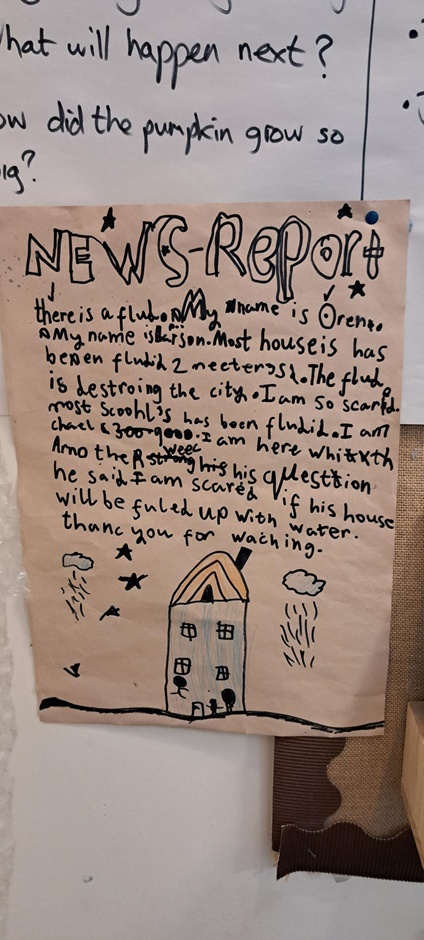 What will happen next?
how did the pumpkin grow so
big?
NEWS-RePort
there is a flud. My name is Orent.
My name is Larson. Most houseis has
beeen fludid 2 meeters. The flud
is destroing the city. I am so scared.
most Scoohl's has been fludid. I am
chael 6 300 9000. I am here
Amo the weec his his questtion
he said I am scared if his house
will be fuled up with water.
thanc you for waching.